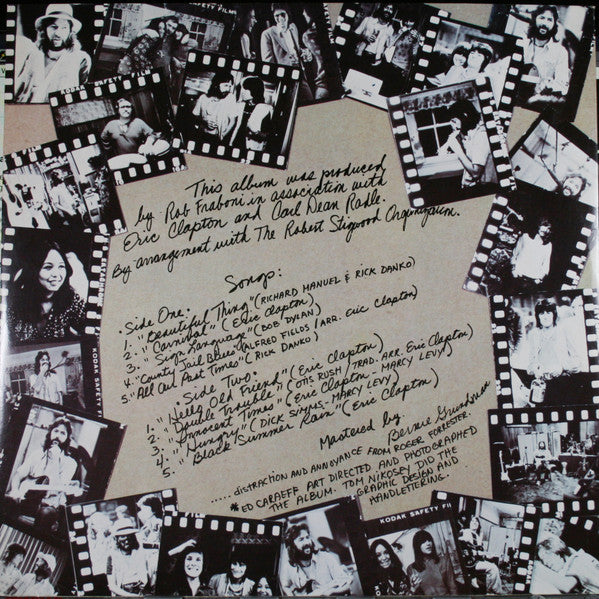 KODAK SAFETY FILM
KODAK SAFETY FI
This album was produced
by Rob Fraboni in association with
Eric Clapton and Carl Dean Radle.
By arrangement with The Robert Stigwood Organization.
Songs:
• Side One:
1. "Beautiful Thing" (RICHARD MANUEL & RICK DANKO)
2. "Carnival" (Eric Clapton)
3. "Sign Language" (BOB DYLAN)
4. "County Jail Blues" (ALFRED FIELDS / ARR. Eric Clapton)
5. "All Our Past Times" (RICK DANKO)
• Side Two:
1. "Hello Old Friend" (Eric Clapton)
2. "Double Trouble" (OTIS RUSH / TRAD. ARR. Eric Clapton)
3. "Innocent Times" (Eric Clapton - MARCY LEVY)
4. "Hungry" (DICK SIMMS - MARCY LEVY)
5. "Black Summer Rain" (Eric Clapton)
Mastered by
Bernie Grundman
..... DISTRACTION AND ANNOYANCE FROM ROGER FORRESTER.
*ED CARAEFF ART DIRECTED AND PHOTOGRAPHED
THE ALBUM. TOM NIKOSEY DID THE
GRAPHIC DESIGN AND
HANDLETTERING.
KODAK SAFETY
KODAK SAFETY FI